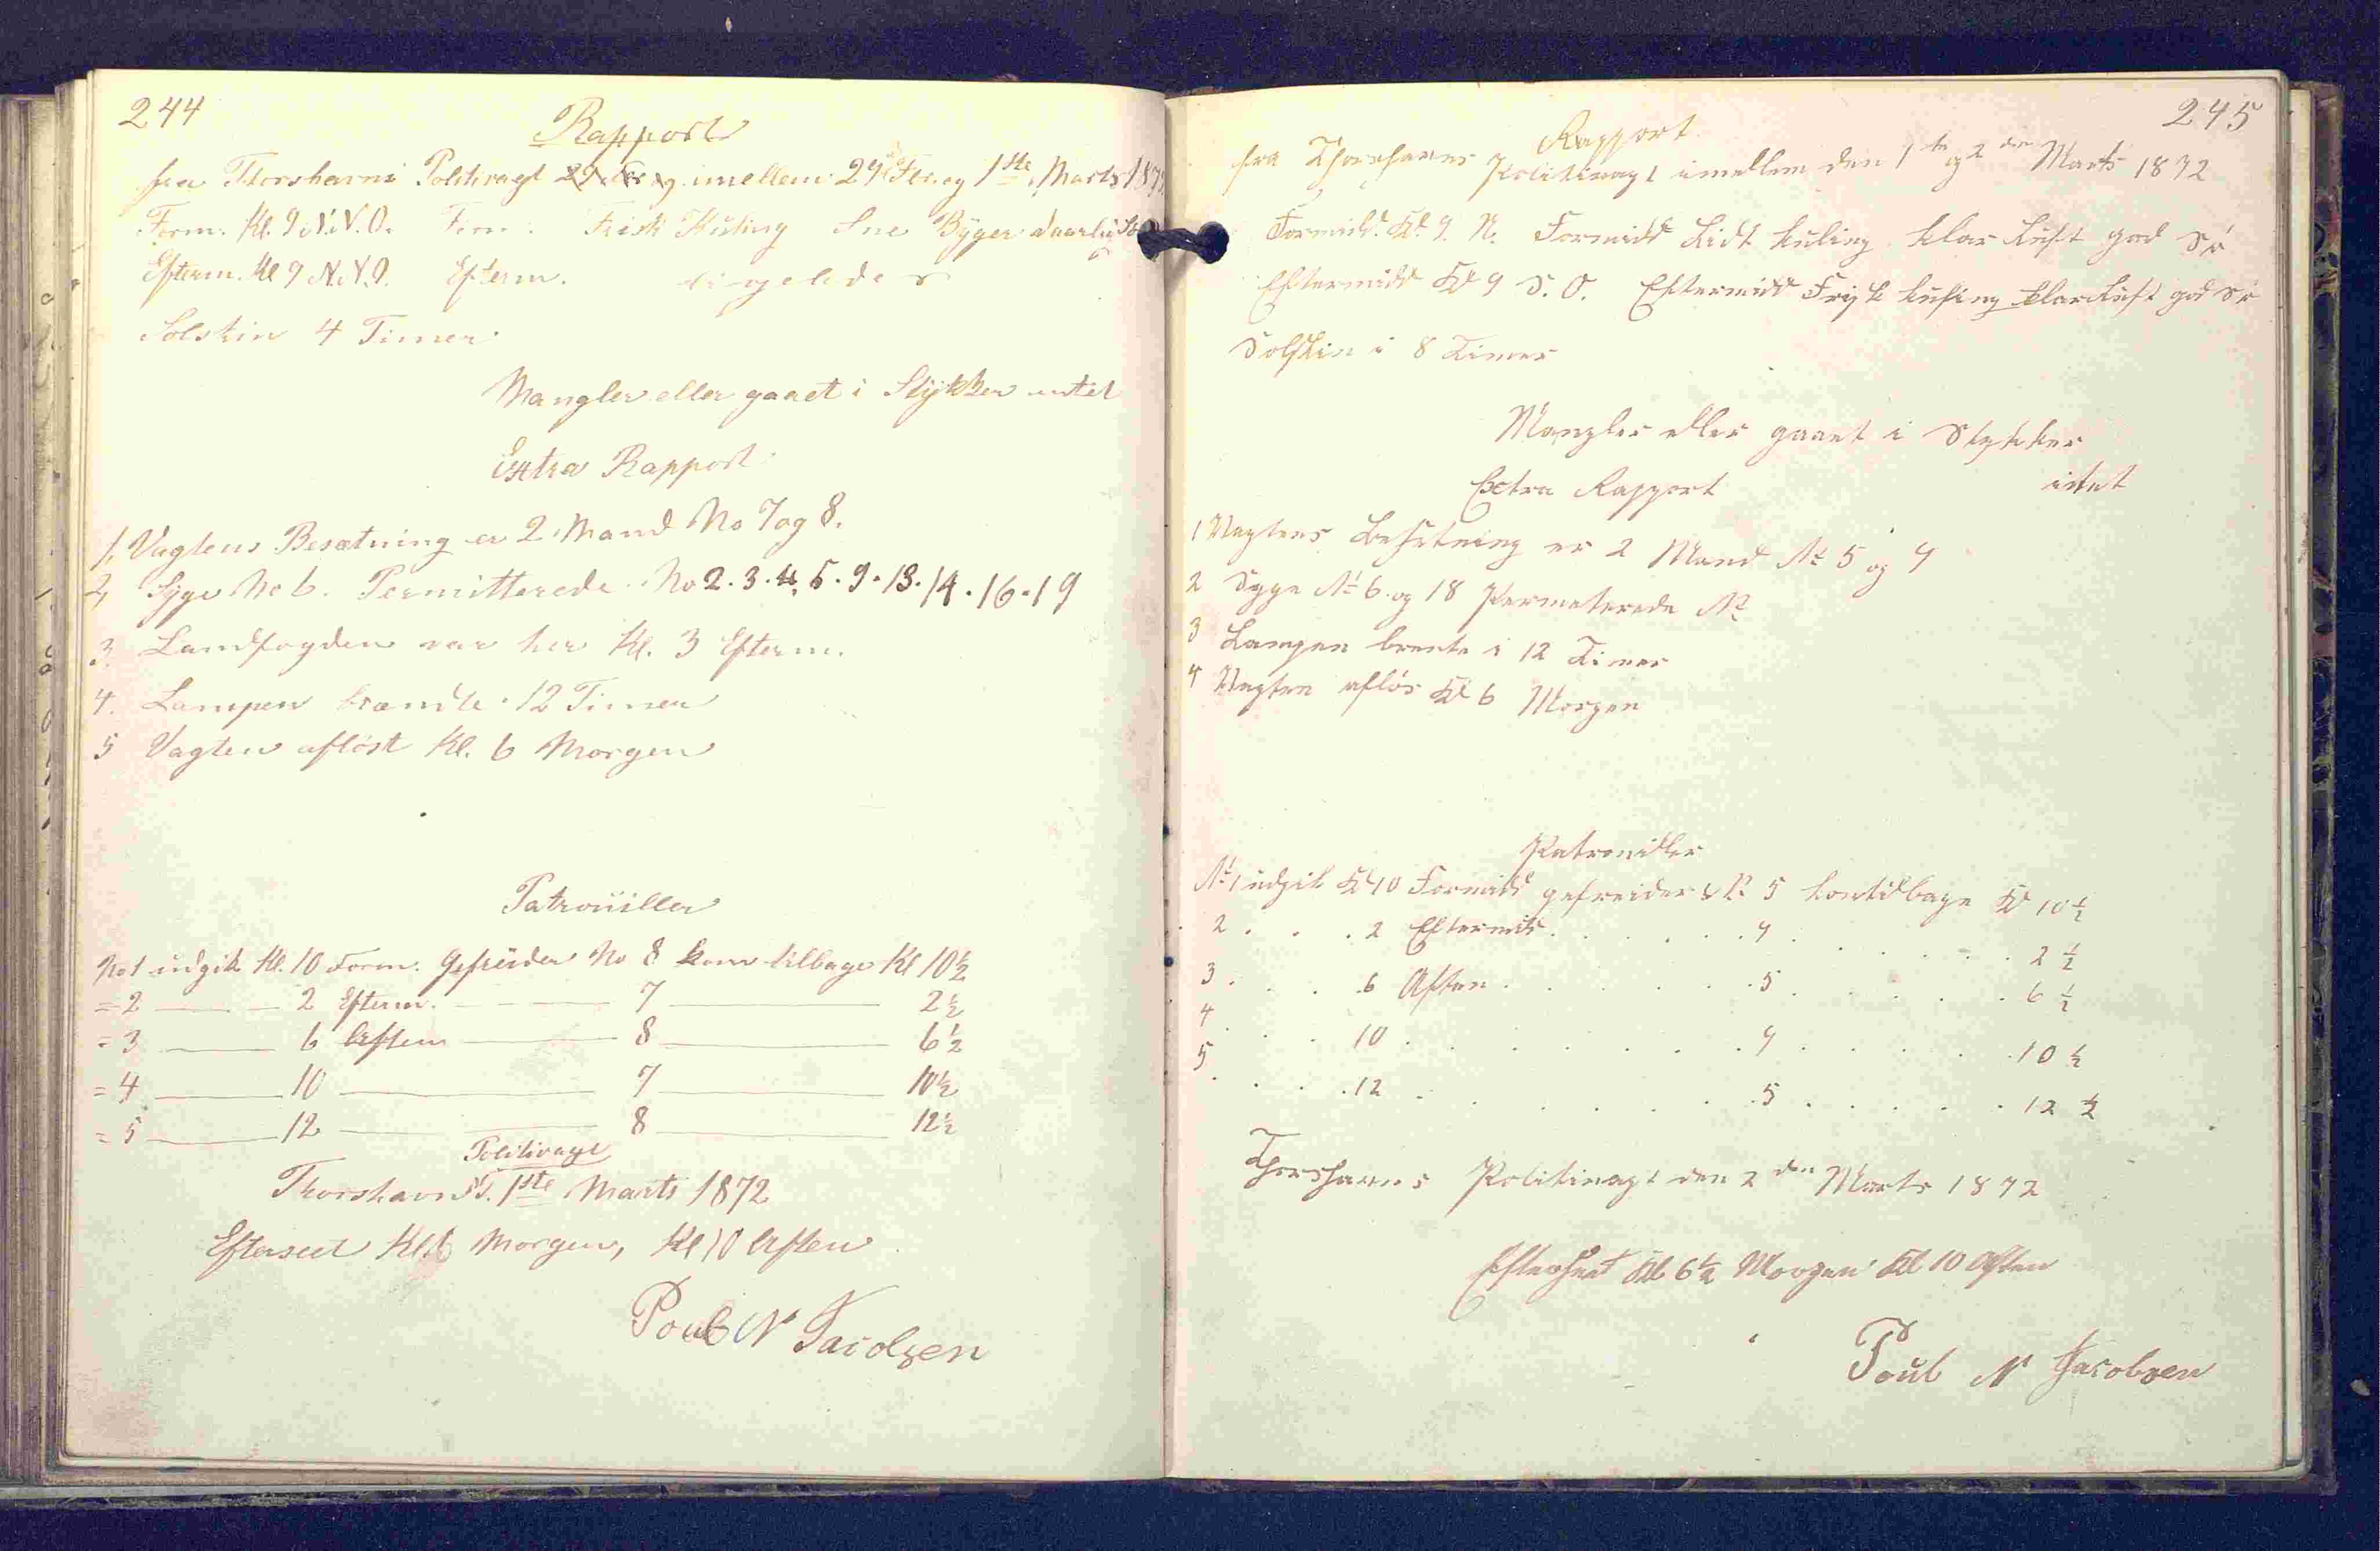 244
Rapport
fra Thorshavns Politivagt imellem 29 Fbr. og 1ste Marts 187
Form. Kl. 9 N.N.O. Form. Frisk Kuling Sne Byger daarlig
Efterm. Kl 9 N.N.O. Efterm. ligeledes
Solskin 4 Timer
Mangler eller gaaet i Stykker intet
Extra Rapport
1, Vagtens Besætning er 2 Mand No 7 og 8.
2, Syge No 6. Permitterede No 2. 3. 4. 5. 9. 13. 14. 16. 19
3. Landfogden var her Kl. 3 Efterm.
4. Lampen brændte 12 Timer
5 Vagten aflöst Kl. 6 Morgen
Patrouiller
No 1 udgik Kl. 10 Form. Gefreider No 8 kom tilbage Kl 10½
= 2 — 2 Efterm. — 7 — 2½
= 3 — 6 Aften — 8 — 6½
= 4 — 10 — 7 — 10½
= 5 — 12 — 8 — 12½
Politivagt
Thorshavns 1ste Marts 1872
Efterseet Kl. 6 Morgen, Kl 10 Aften
Poul N Jacobsen
245
Rapport
fra Thorshavns Politivagt imellem den 1ste og 2den Marts 1872
Formidd. Kl. 9. N. Formidd Lidt kuling klar Luft god Sö
Eftermidd Kl 9 S. O. Eftermidd Frisk kuling klar Luft god Sö
Solskin i 8 Timer
Mangler eller gaaet i Stykker
intet
Extra Rapport
1 Vagtens Besetning er 2 Mand No 5 og 7
2 Syge No 6. og 18 Permeterede No
3 Lampen brente i 12 Timer
4 Vagten aflös Kl 6 Morgen
Patrouiller
No 1 udgik Kl 10 Formidd gefreider No 5 kom tilbage Kl 10½
2 . . . 2 Eftermidd . . . . 7 . . . . 2½
3 . . . 6 Aften . . . . 5 . . . . 6½
4 . . . 10 . . . . 7 . . . . 10½
5 . . . 12 . . . . 5 . . . . 12½
Thorshavns Politivagt den 2den Marts 1872
Efterseet Kl 6½ Morgen Kl 10 Aften
Poul N Jacobsen